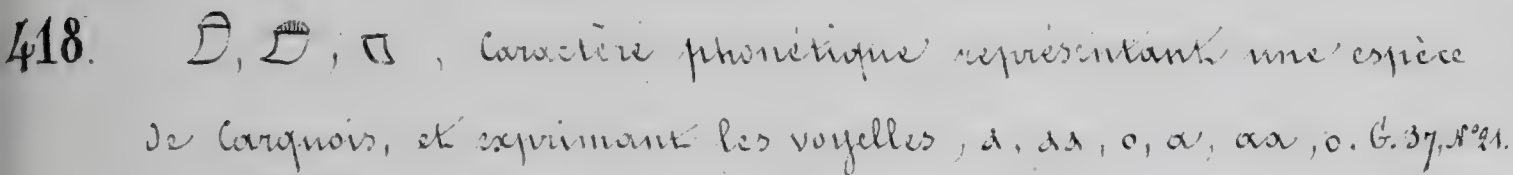 418. , , , Caractère phonétique représentant une espèce
de Carquois, et exprimant les voyelles, ⲁ, ⲁⲁ, ⲟ, a, aa, o. G. 37, N° 21.